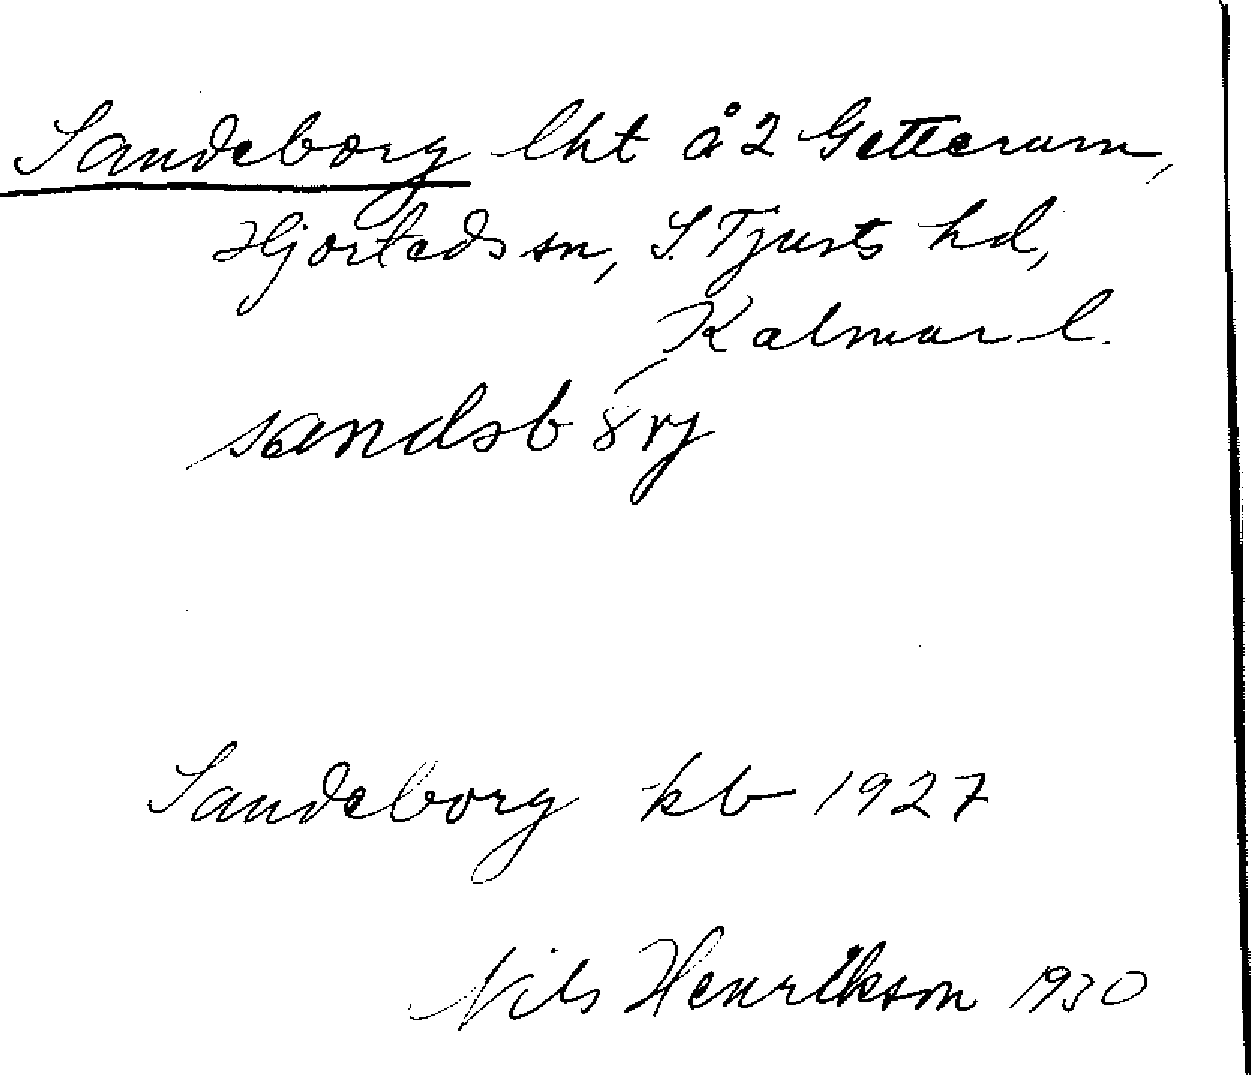 Sandeborg lht å 2 Getterum,
Hjorteds sn, S. Tjusts hd,
Kalmar l.
Sandeborg kb 1927
Nils Henrikson 1930